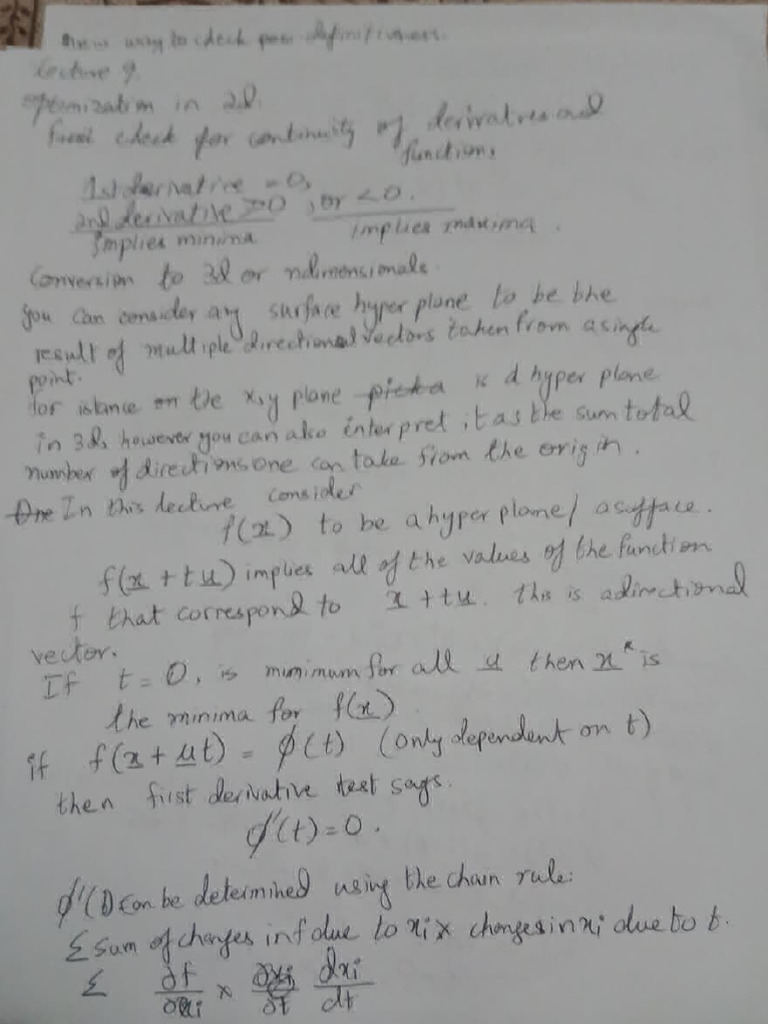 way to check definitiveness.
Lecture 9.
optimization in 2d.
check for continuity of derivatives and
functions
1st derivative = 0,
2nd derivative > 0, or < 0.
implies minima implies maxima.
Conversion to 3d or ndimensionals.
you can consider any surface hyper plane to be the
result of multiple directional vectors taken from a single
point.
for istance on the x,y plane is a hyper plane
in 3d, however you can also interpret it as the sum total
number of directions one can take from the origin.
One In this lecture consider
f(x) to be a hyper plane/ a surface.
f(x + tu) implies all of the values of the function
f that correspond to x + tu. this is a directional
vector.
If t = 0, is minimum for all u then x* is
the minima for f(x)
if f(x + ut) = ϕ(t) (only dependent on t)
then first derivative test says.
ϕ'(t) = 0.
ϕ'(t) can be determined using the chain rule:
Σ sum of changes in f due to xi × changes in xi due to t.
Σ ∂f/∂xi × dxi/dt